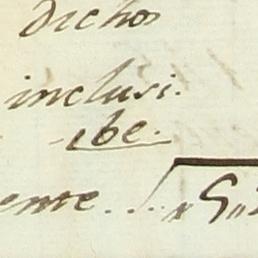 dichos
inclusi.
ibe.
ente.